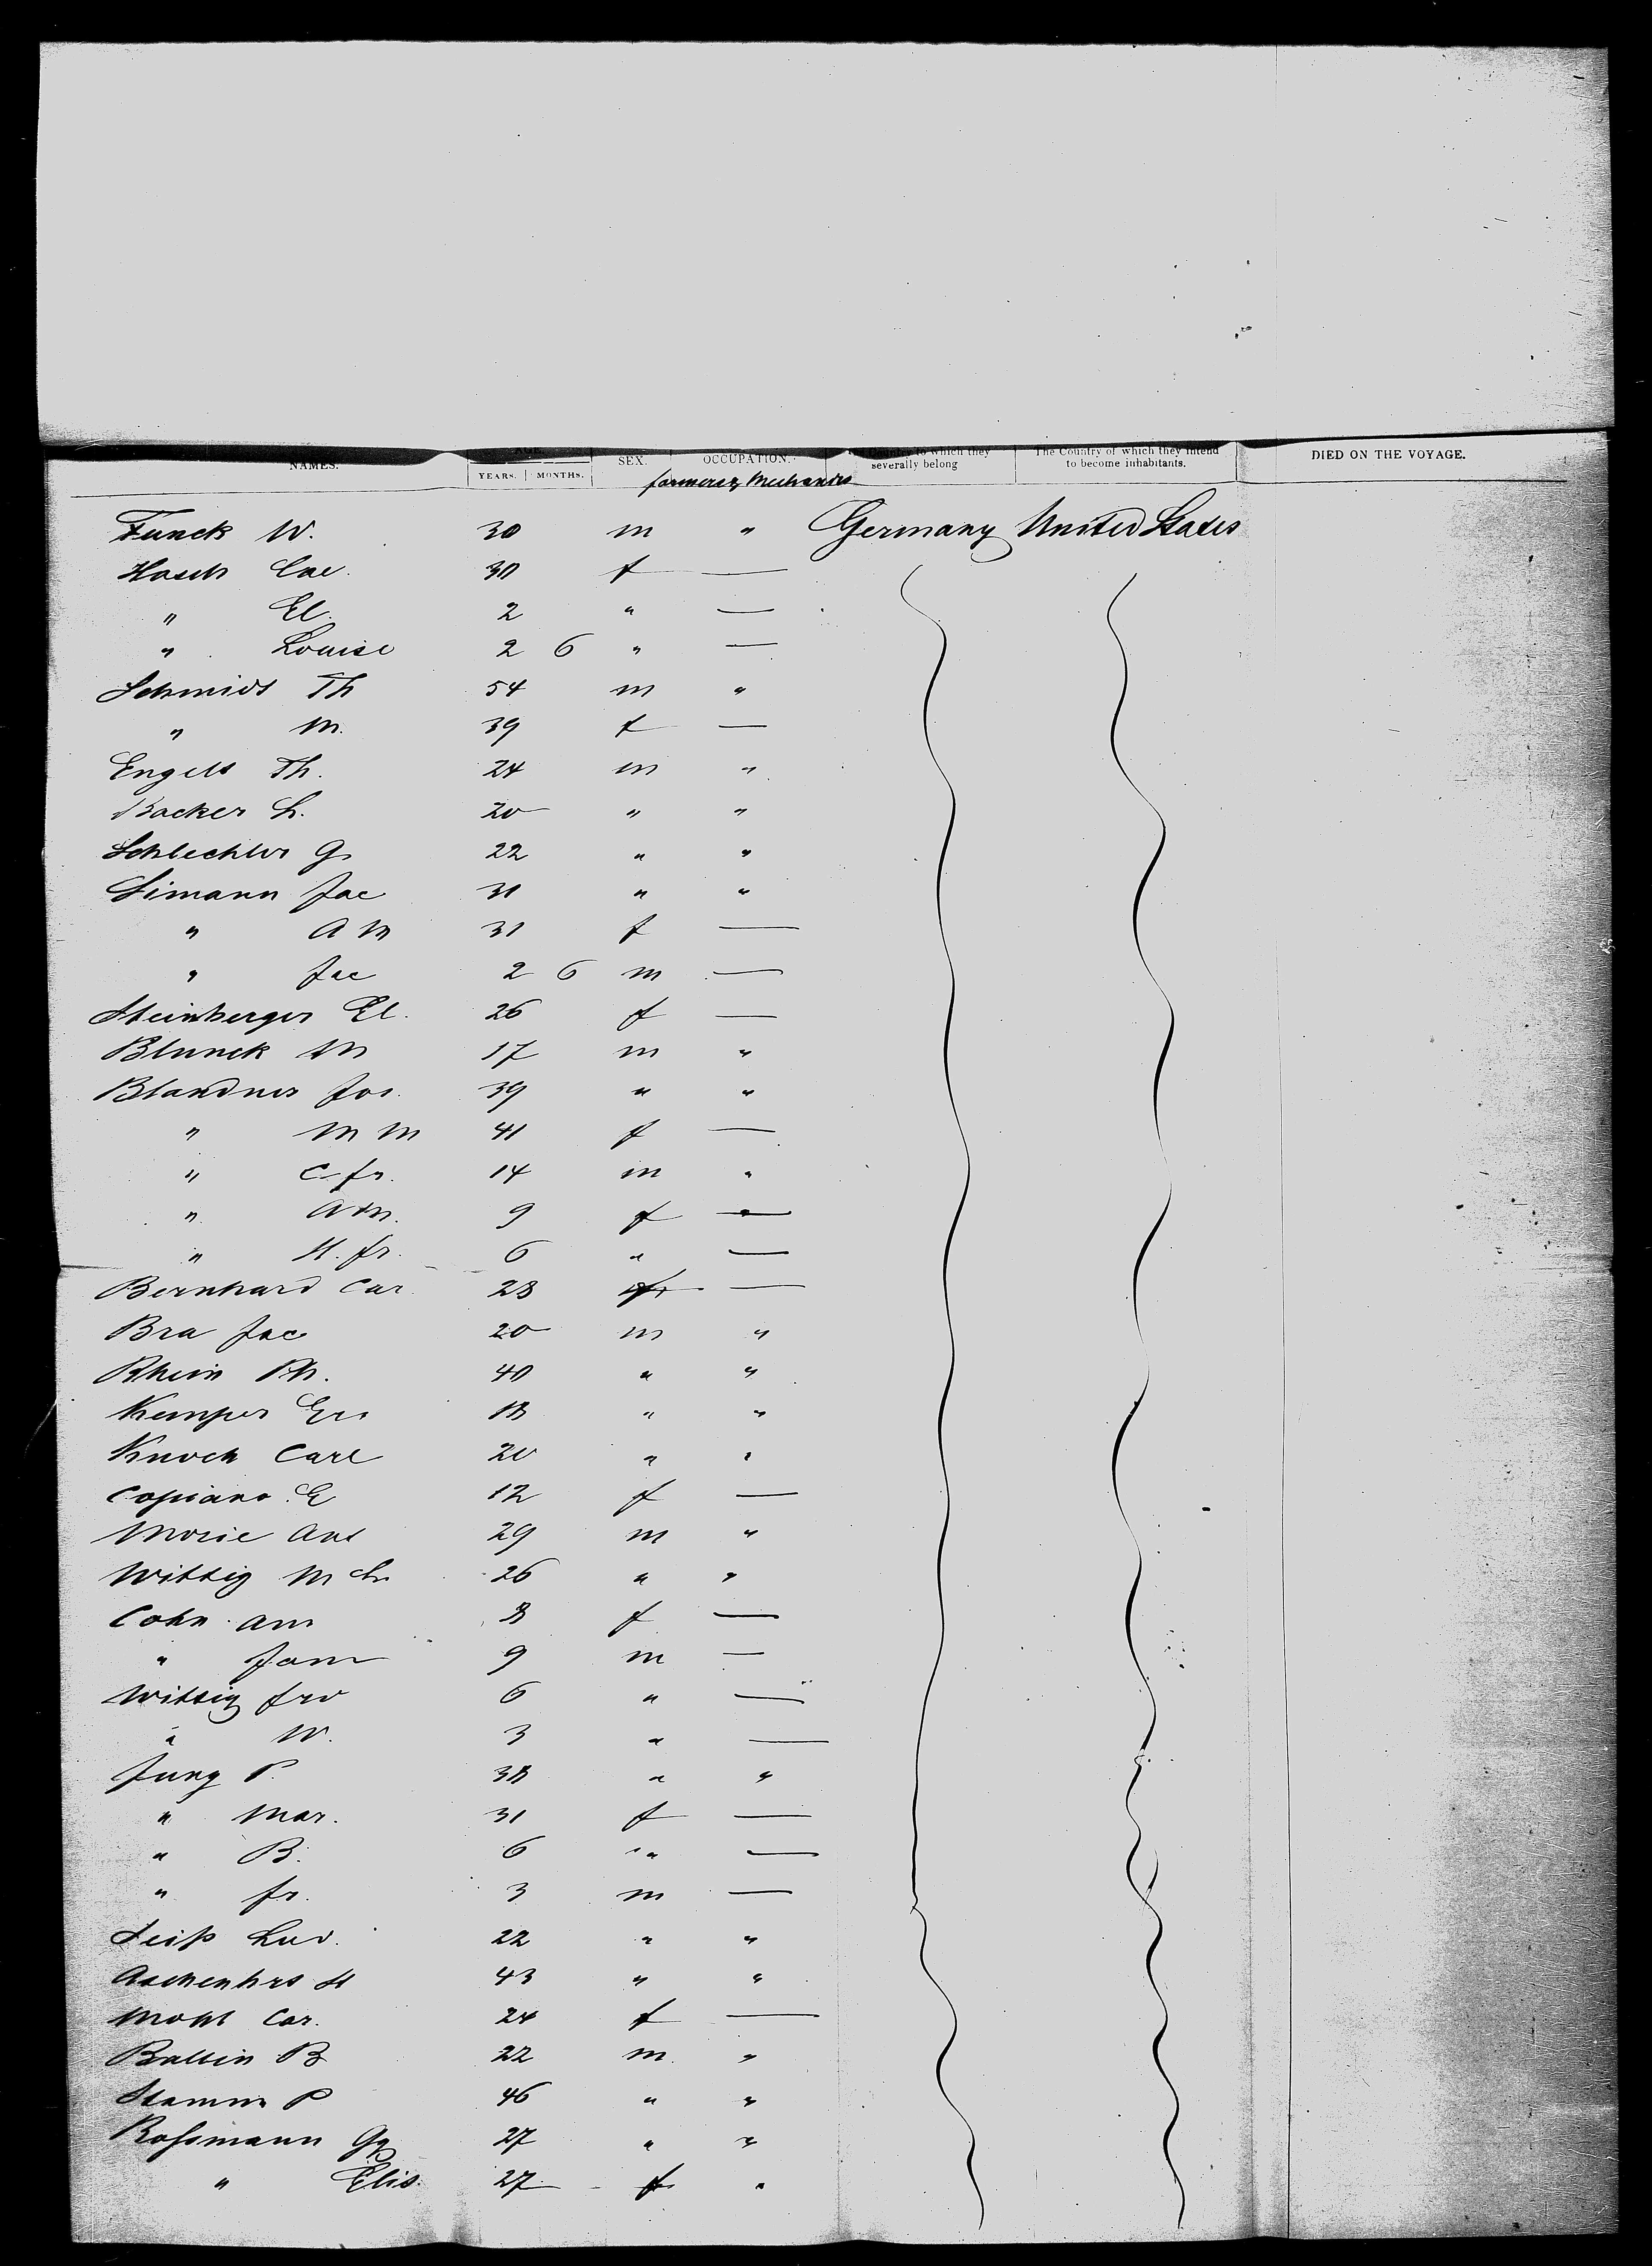 NAMES. AGE. SEX. OCCUPATION. The Country to which they The Country of which they intend DIED ON THE VOYAGE.
YEARS. MONTHS. severally belong to become inhabitants.
farmers & Mechanics
Funck W. 30 m " Germany United States
Hasch Car. 30 f —
" El. 2 " —
" Louise 2 6 " —
Schmidt Th 54 m "
" M. 39 f —
Engels Th. 24 m "
Backer L. 20 " "
Schlechter G 22 " "
Simann Jac 31 " "
" A M 31 f —
" Jac 2 6 m —
Steinberger El. 26 f —
Blunck M 17 m "
Blandner Jos. 39 " "
" M M 41 f —
" C fr. 14 m "
" A M. 9 f —
" H. fr. 6 " —
Bernhard Car 28 f —
Bra Jac 20 m "
Rhein Ph. 40 " "
Kemper 18 " "
Knoch Carl 20 " "
Copiano E 12 f —
Morie Ant 29 m "
Wittig M Ch 26 " "
Cohn Am 8 f —
" Jam 9 m —
Wittig frd 6 " —
" W. 3 " —
Jung P. 38 " "
" Mar. 31 f —
" B. 6 " —
" fr. 3 m —
Seiß Lud. 22 " "
Aschenbrs H 43 " "
Mohl Car. 24 f —
Ballin B 22 m "
Stamm P 46 " "
Roßmann Gg 27 " "
" Elis. 27 f "